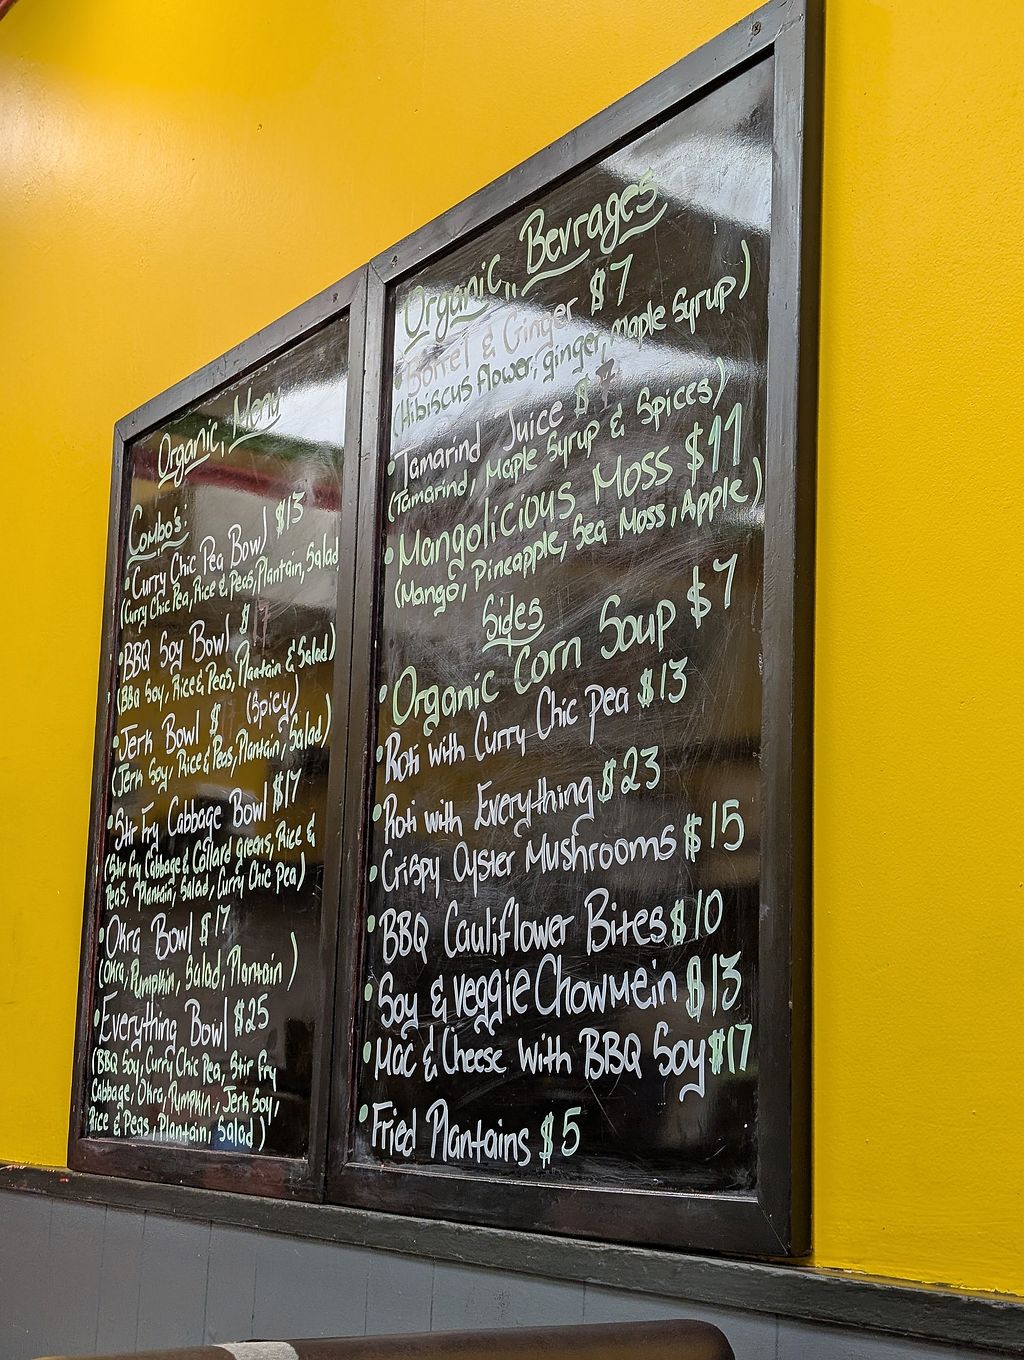 Organic, Menu
Combo's:
• Curry Chic Pea Bowl $13
(Curry Chic Pea, Rice & Peas, Plantain, Salad
• BBQ Soy Bowl $17
(BBQ Soy, Rice & Peas, Plantain & Salad)
• Jerk Bowl $ (Spicy)
(Jerk Soy, Rice & Peas, Plantain, Salad)
• Stir Fry Cabbage Bowl $17
(Stir Fry Cabbage & Collard greens, Rice &
Peas, Plantain, Salad, Curry Chic Pea)
• Okra Bowl $17
(Okra, Pumpkin, Salad, Plantain)
• Everything Bowl $25
(BBQ Soy, Curry Chic Pea, Stir Fry
Cabbage, Okra, Pumpkin, Jerk Soy,
Rice & Peas, Plantain, Salad)
Organic,, Bevrages
• Sorrel & Ginger $7
(Hibiscus flower, ginger, maple Syrup)
• Tamarind Juice $7
(Tamarind, Maple Syrup & Spices)
• Mangolicious Moss $11
(Mango, Pineapple, Sea Moss, Apple)
Sides
• Organic Corn Soup $7
• Roti with Curry Chic Pea $13
• Roti with Everything $23
• Crispy Oyster Mushrooms $15
• BBQ Cauliflower Bites $10
• Soy & Veggie Chowmein $13
• Mac & Cheese With BBQ Soy $17
• Fried Plantains $5